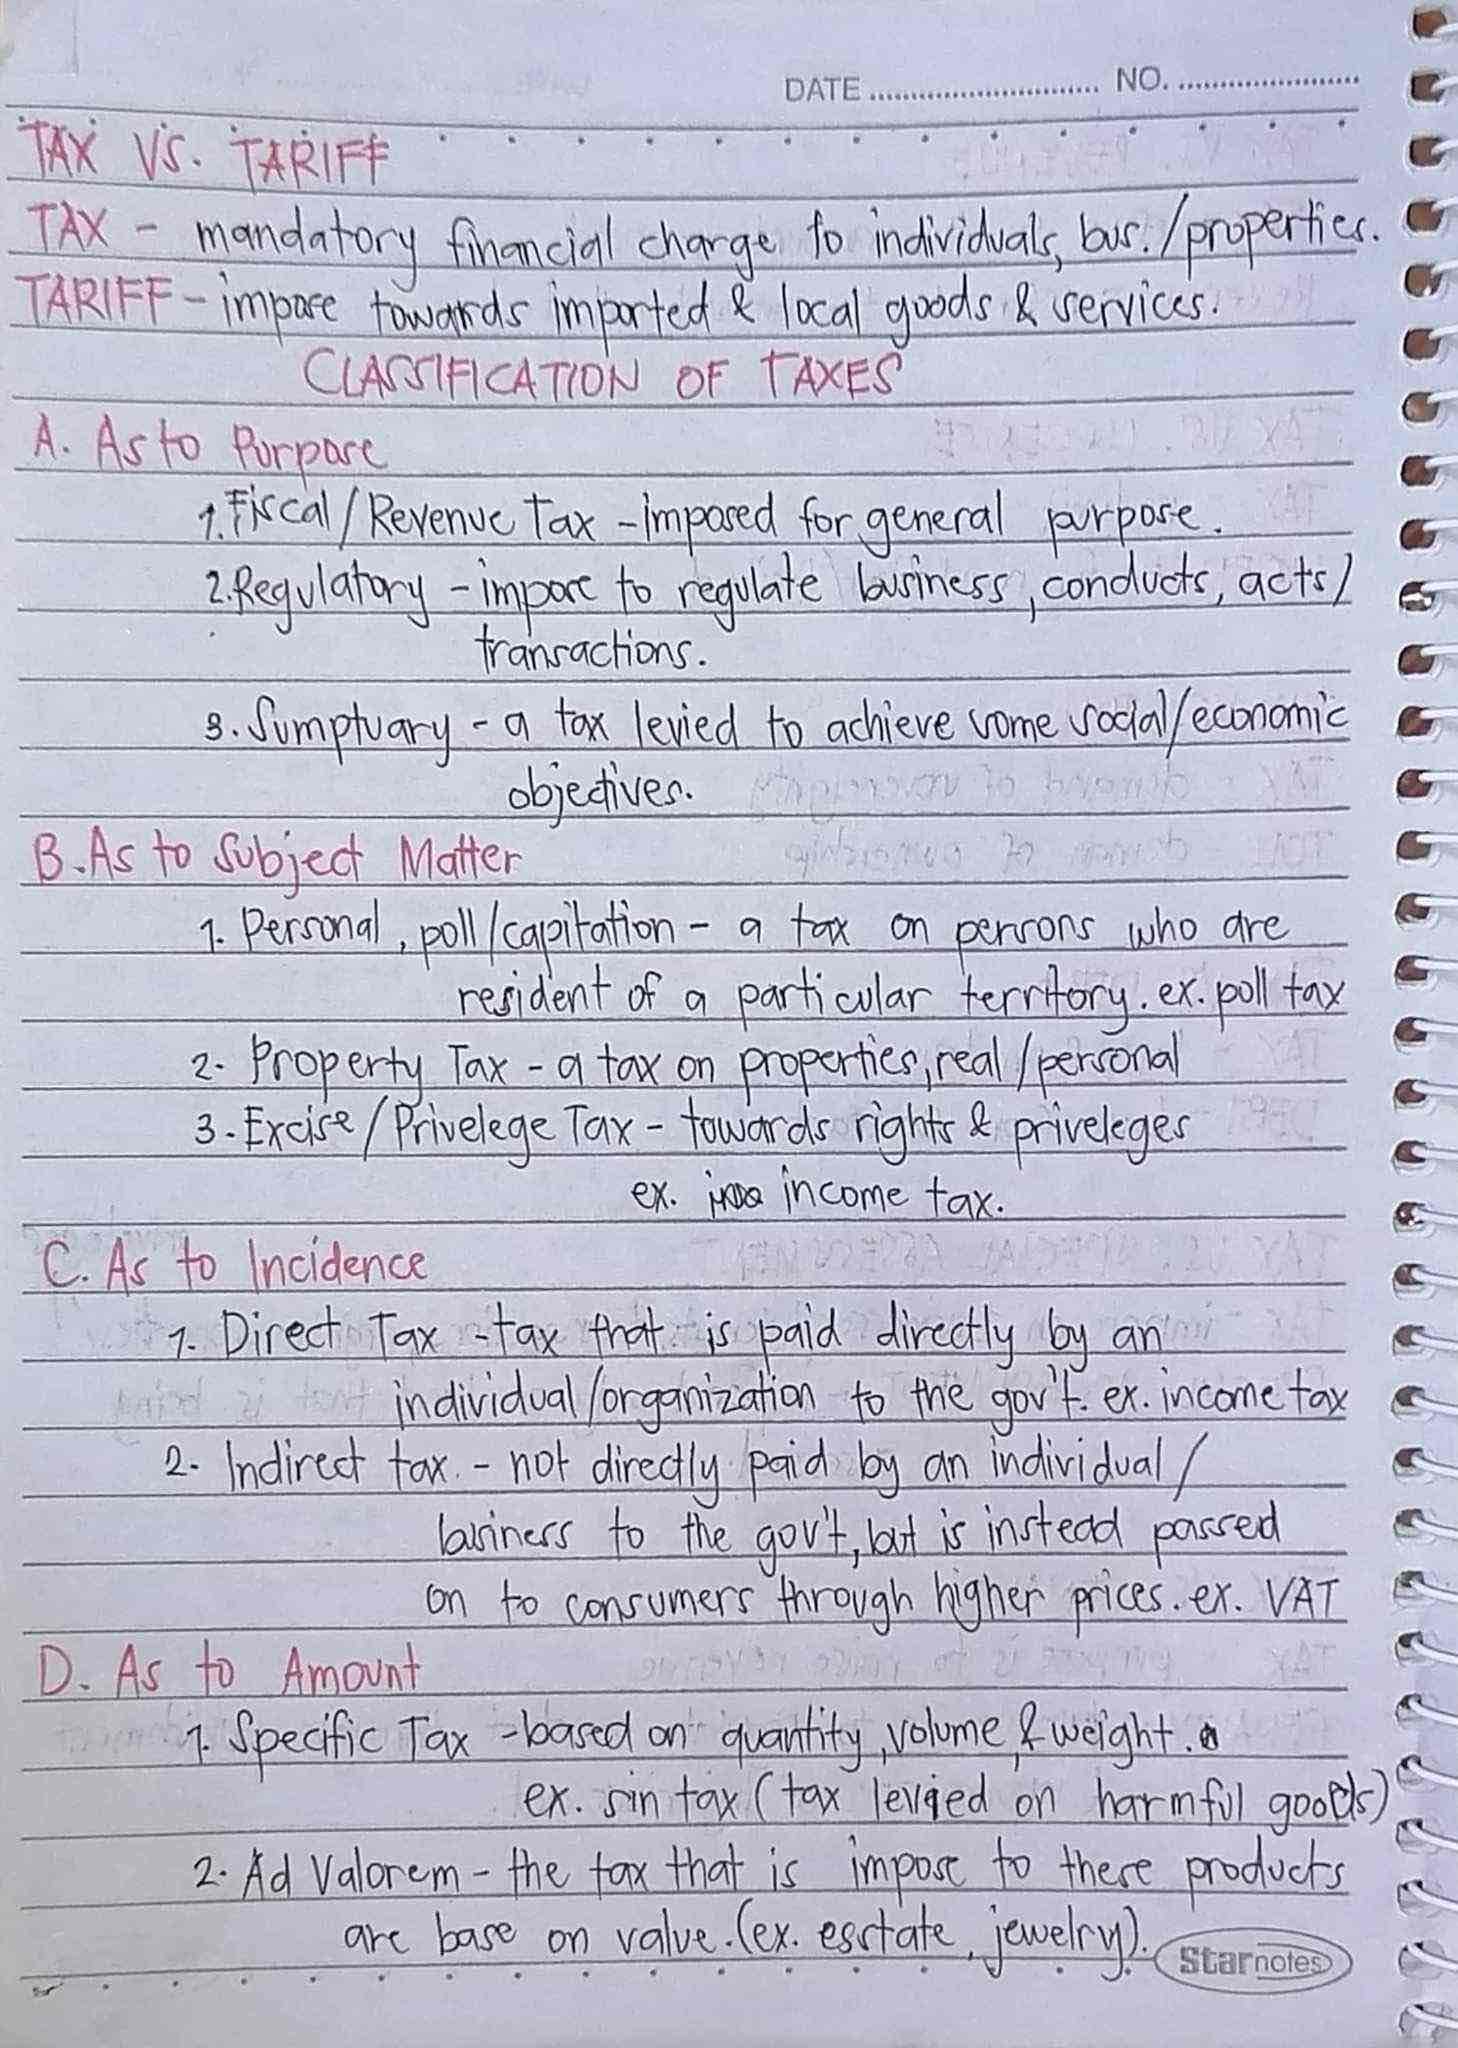 DATE ........................... NO. .....................
TAX VS. TARIFF
TAX - mandatory financial charge to individuals, bus./properties.
TARIFF - impose towards imported & local goods & services.
CLASSIFICATION OF TAXES
A. As to Purpose
1. Fiscal/Revenue Tax - imposed for general purpose.
2. Regulatory - impose to regulate business, conducts, acts/
transactions.
3. Sumptuary - a tax levied to achieve some social/economic
objectives.
B. As to Subject Matter
1. Personal, poll/capitation - a tax on persons who are
resident of a particular territory. ex. poll tax
2. Property Tax - a tax on properties, real/personal
3. Excise/Privelege Tax - towards rights & priveleges
ex. income tax.
C. As to Incidence
1. Direct Tax - tax that is paid directly by an
individual/organization to the gov't. ex. income tax
2. Indirect tax. - not directly paid by an individual/
business to the gov't, but is instead passed
on to consumers through higher prices. ex. VAT
D. As to Amount
1. Specific Tax - based on quantity, volume, & weight.
ex. sin tax (tax levied on harmful goods)
2. Ad Valorem - the tax that is impose to these products
are base on value. (ex. esstate, jewelry).
Starnotes